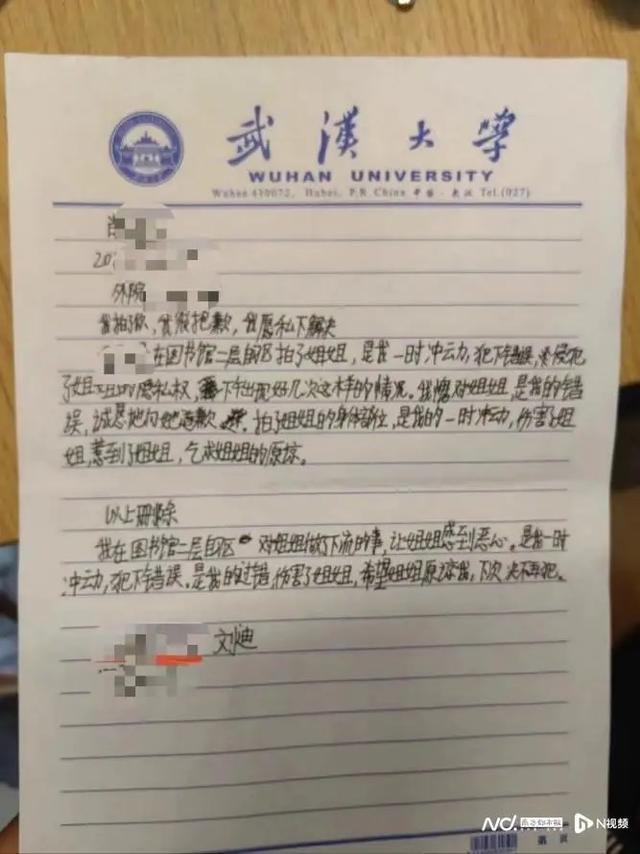 武漢大學
WUHAN UNIVERSITY
Wuhan 430072, Hubei, P.R.China 中国·武汉 Tel.(027)
肖
20
外院
我拍了你，我很抱歉，我愿私下解决
在图书馆二层自习区拍了姐姐，是我一时冲动，犯下错误，侵犯
了姐姐的隐私权，下午出现好几次这样的情况。我愧对姐姐，是我的错
误，诚恳地向她道歉。拍了姐姐的身体部位，是我的一时冲动，伤害了姐
姐，惹到了姐姐，乞求姐姐的原谅。
以上删除
我在图书馆二层自习区 对姐姐做了下流的事，让姐姐感到恶心。是我一时
冲动，犯下错误。是我的过错，伤害了姐姐，希望姐姐原谅我，下次决不再犯。
刘迪
第 页
南方都市报
N视频